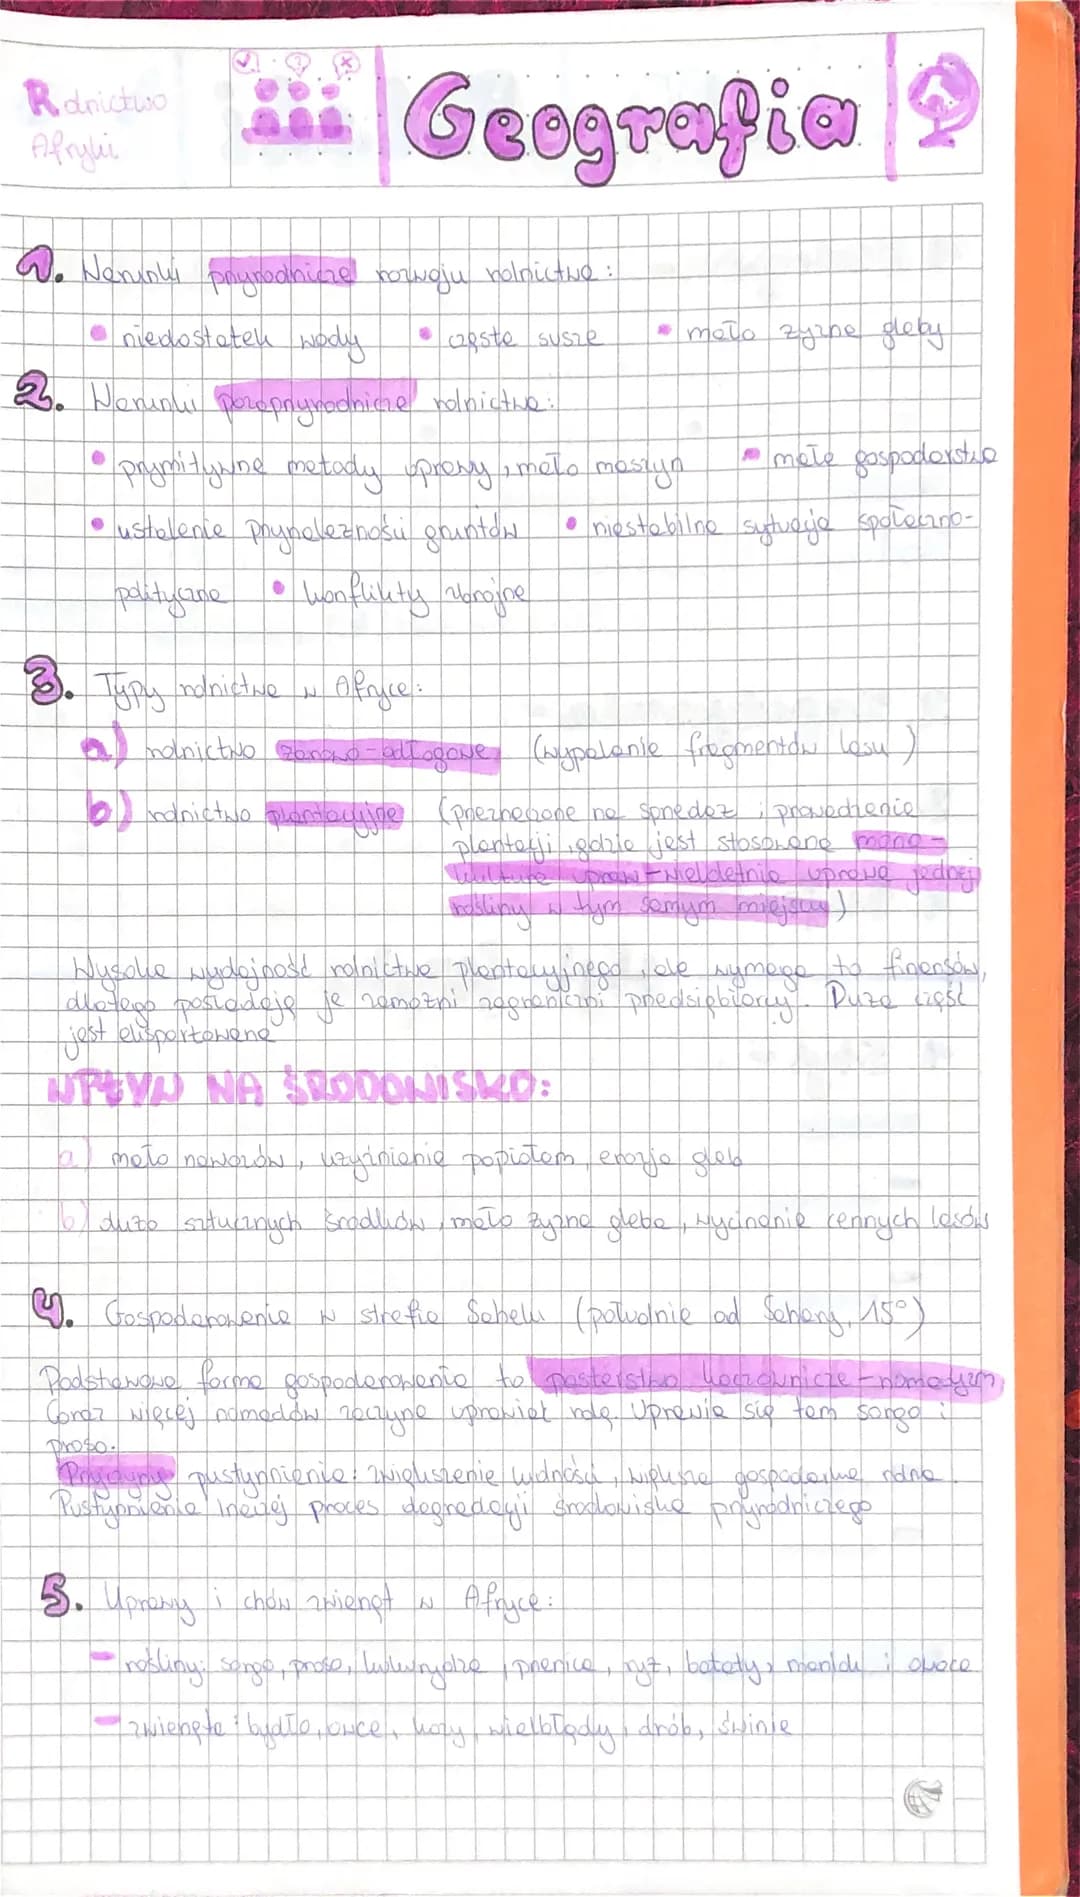 Rolnictwo
Afryki
Geografia
1. Warunki przyrodnicze rozwoju rolnictwa:
• niedostatek wody • częste susze • mało żyzne gleby
2. Warunki pozaprzyrodnicze rolnictwa:
• prymitywne metody uprawy, mało maszyn • małe gospodarstwa
• ustalenie przynależności gruntów • niestabilna sytuacja społeczno-
polityczna • konflikty zbrojne
3. Typy rolnictwa w Afryce:
a) rolnictwo żarowo-odłogowe (wypalanie fragmentów lasu)
b) rolnictwo plantacyjne (przeznaczone na sprzedaż i prowadzenie
plantacji, gdzie jest stosowana mono-
kultura upraw - wieloletnia uprawa jednej
rośliny w tym samym miejscu)
Wysoka wydajność rolnictwa plantacyjnego, ale wymaga to finansów,
dlatego posiadają je zamożni zagraniczni przedsiębiorcy. Duża część
jest eksportowana
WPŁYW NA ŚRODOWISKO:
a) mało nawozów, użyźnienie popiołem, erozja gleb
b) dużo sztucznych środków, mało żyzna gleba, wycinanie cennych lasów
4. Gospodarowanie w strefie Sahelu (południe od Sahary, 15°)
Podstawową formą gospodarowania to pasterstwo koczownicze - nomadyzm
Coraz więcej nomadów zaczyna uprawiać rolę. Uprawia się tam sorgo i
proso.
Przyczyny pustynnienia: zwiększenie ludności, większa gospodarka rolna.
Pustynnienie inaczej proces degradacji środowiska przyrodniczego
5. Uprawy i chów zwierząt w Afryce:
- rośliny: sorgo, proso, kukurydza, pszenica, ryż, bataty, maniok i owoce
- zwierzęta: bydło, owce, kozy, wielbłądy, drób, świnie